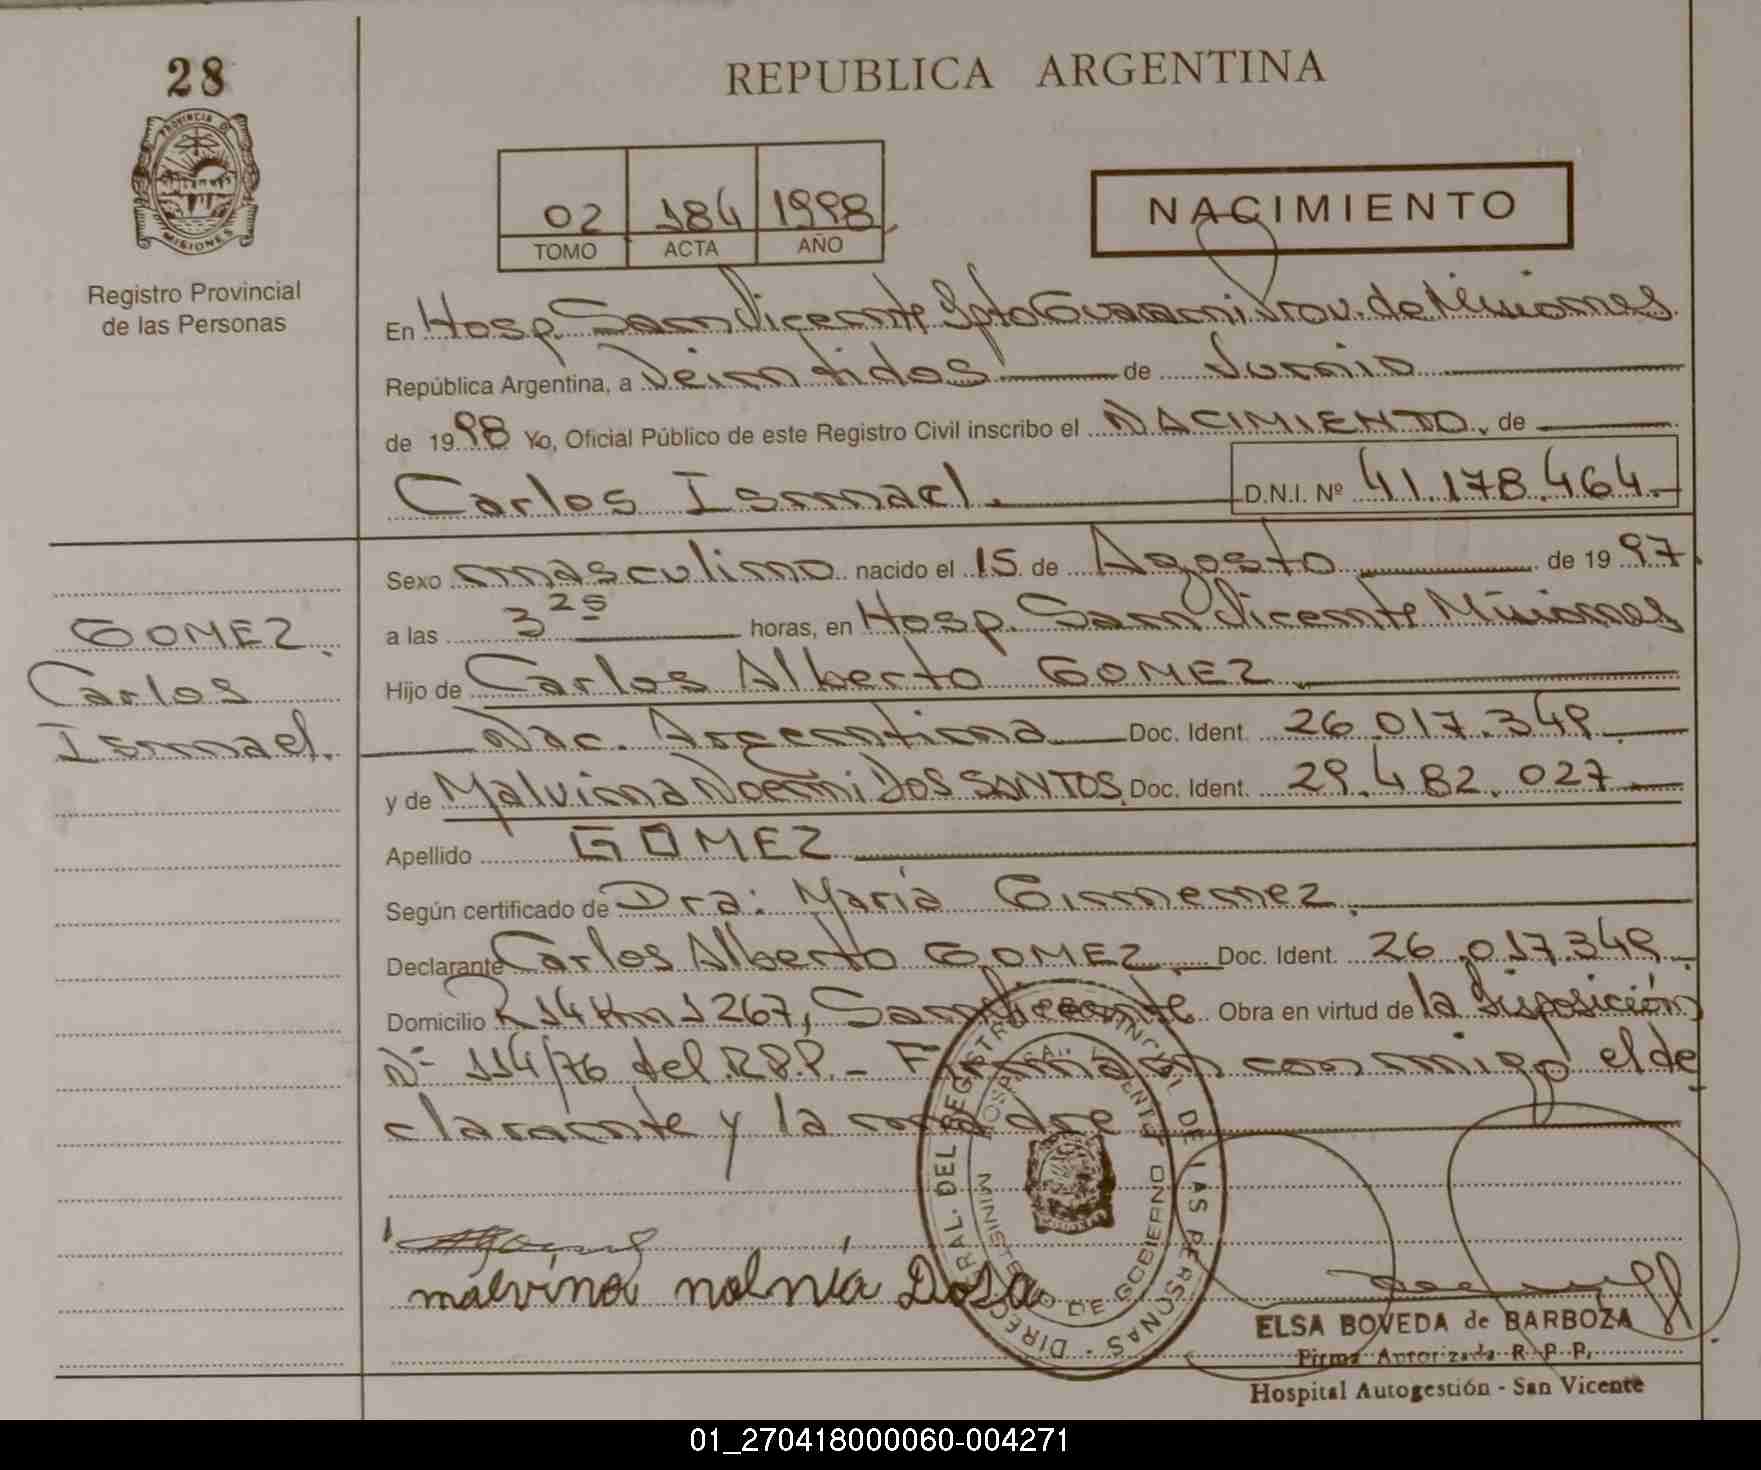 28
PROVINCIA DE
MISIONES
Registro Provincial
de las Personas
REPUBLICA ARGENTINA
02 184 1998
TOMO ACTA AÑO
NACIMIENTO
En Hosp. San Vicente Dpto Guarani Prov. de Misiones
República Argentina, a Veintidos de Junio
de 1998 Yo, Oficial Público de este Registro Civil inscribo el NACIMIENTO, de
Carlos Ismael. D.N.I. Nº 41.178.464.-
Sexo masculino nacido el 15 de Agosto de 1997
a las 3 25 horas, en Hosp. San Vicente Misiones
GOMEZ.
Carlos
Ismael.
Hijo de Carlos Alberto GOMEZ.
Nac. Argentina Doc. Ident. 26.017.349.
y de Malvina Noemi DOS SANTOS. Doc. Ident. 29.482.027
Apellido GOMEZ
Según certificado de Dra: Maria Gimenez.
Declarante Carlos Alberto GOMEZ. Doc. Ident. 26.017.349.
Domicilio R 14 Km 1267, San Vicente Obra en virtud de la Disposición
Nº 114/76 del R.P.P. - Firman conmigo el de
clarante y la madre
DIRECC RAL. DEL REGISTRO PROVINCIAL DE LAS PERSONAS
HOSPITAL VICENTE
MINISTERIO DE GOBIERNO
malvina
ELSA BOVEDA de BARBOZA
Firma Autorizada R. P. P.
Hospital Autogestión - San Vicente
01_270418000060-004271